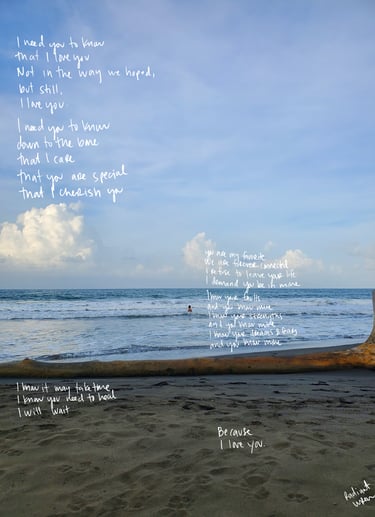 I need you to know
that I love you
Not in the way we hoped,
but still,
I love you
I need you to know
down to the bone
that I care
that you are special
that I cherish you
you are my favorite
we are forever connected
I refuse to leave your life
I demand you be in mine
I know your faults
and you know mine
I know your strengths
and you know mine
I know your dreams & fears
and you know mine
I know it may take time
I know you need to heal
I will wait
Because
I love you.
Radiant